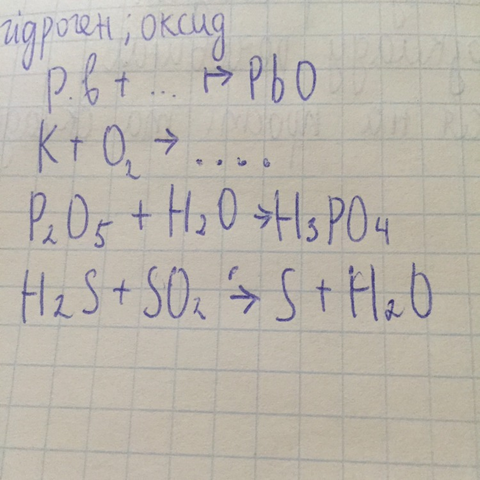 гідроген; оксид
Pb + ... → PbO
K + O₂ → ....
P₂O₅ + H₂O → H₃PO₄
H₂S + SO₂ → S + H₂O